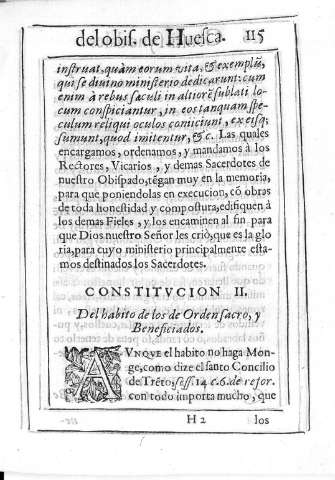 del obis. de Huesca. 115
instruat, quàm eorum vita, & exemplũ,
qui se divino ministerio dedicarunt: cum
enim à rebus sæculi in altiorẽ sublati lo-
cum conspiciantur, in eos tanquam spe-
culum reliqui oculos coniciunt, ex eisq;
sumunt, quod imitentur, & c. Las quales
encargamos, ordenamos, y mandamos à los
Rectores, Vicarios, y demas Sacerdotes de
nuestro Obispado, tẽgan muy en la memoria,
para que poniendolas en execucion, cõ obras
de toda honestidad y compostura, edifiquen à
los demas Fieles, y los encaminen al fin para
que Dios nuestro Señor les criò, que es la glo
ria, para cuyo ministerio principalmente esta-
mos destinados los Sacerdotes.
CONSTITVCION II.
Del habito de los de Orden sacro, y
Beneficiados.
AVNQVE el habito no haga Mon-
ge, como dize el santo Concilio
de Trẽto, sess. 14 c. 6. de refor.
con todo importa mucho, que
H 2 los